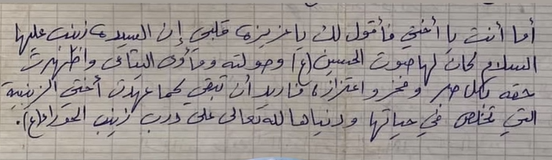 أما أنت يا أختي فأقول لك يا عزيزة قلبي إن السيدة زينب عليها
السلام كان لها صوت الحسين (ع) وصولته ومأوى اليتامى وأظهرت
حقه بكل صبر وفخر واعتزاز، فأريد أن تبقي كما عهدت أختي الزينبية
التي تخلص في حياتها ودنياها لله تعالى على درب زينب الحوراء (ع).